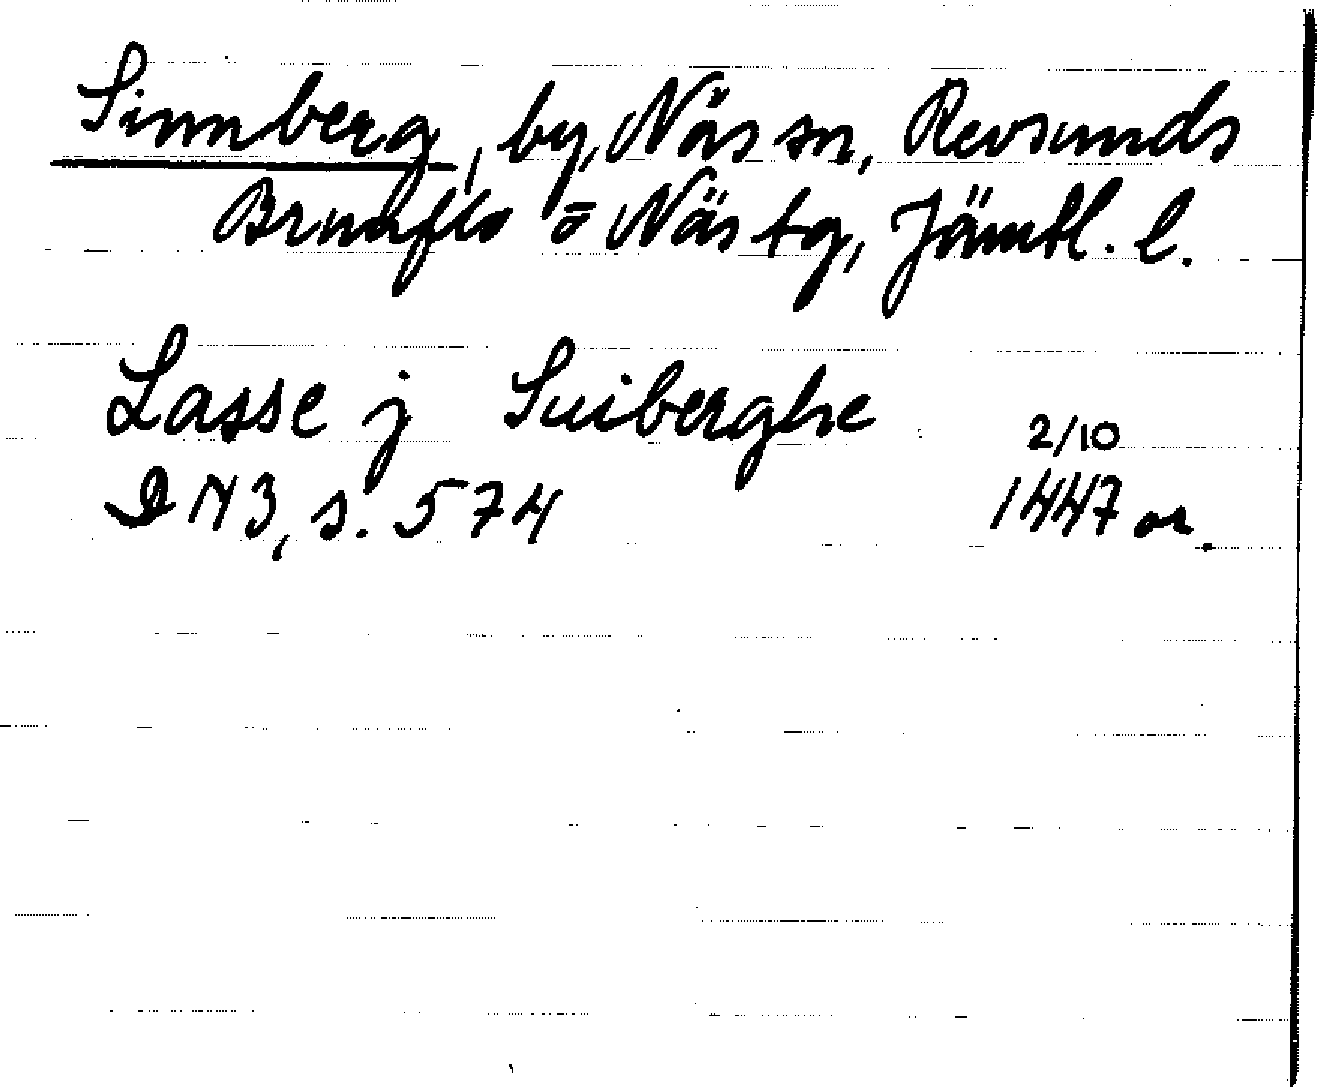 Sinnberg, by, Näs sn, Revsunds
Brunflo o Näs tg, Jämtl. l.
Lasse j Suiberghe
2/10
DN 3, s. 574 1447 or.